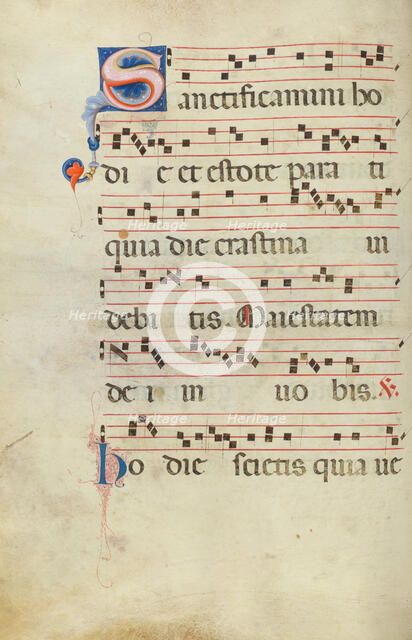 Sanctificamini ho
di e et estote para ti
quia die crastina ui
debi tis. Maiestatem
de i in uo bis. V
ho die scietis quia ue
Heritage
Heritage
Heritage
Heritage
Heritage
Heritage
Heritage
Heritage